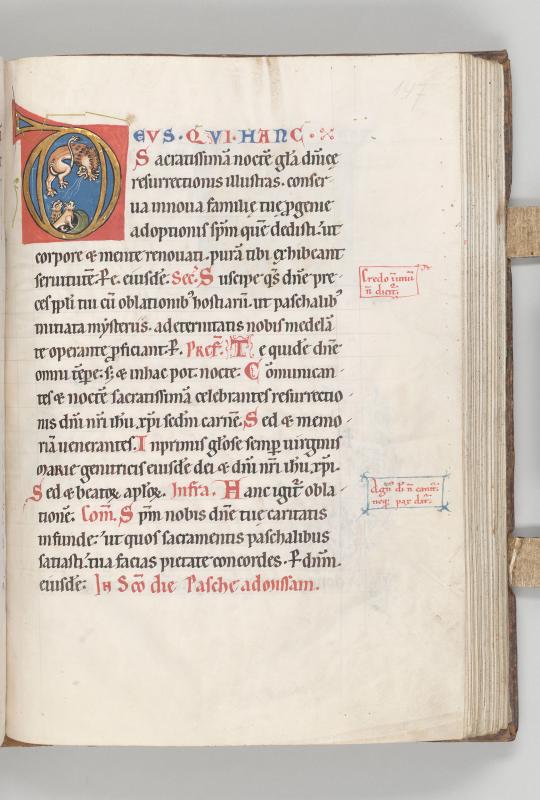 147
DEVS · QVI · HANC ·
Sacratissimā noctē gl̄a dn̄icę
resurrectionis illustras. conser-
ua in noua familię tuę p̄genie
adoptionis sp̄m quē dedisti. ut
corpore & mente renouati. purā tibi exhibeant
seruitutē. P. e. eiusdē. Sec̄. Suscipe qs̄ dn̄e pre-
ces ppl̄i tui cū oblationib; hostiarū. ut paschalib;
initiata mẏsteriis. ad eternitatis nobis medelā
te operante p̄ficiant. P. Pref. Te quidē dn̄e
omni tēpe. s; & in hac pot. nocte. Cōmunican-
tes & noctē sacratissimā celebrantes resurrectio-
nis dn̄i nr̄i ih̄u xp̄i sedm carnē. Sed & memo-
riā uenerantes. Inprimis gl̄ose semp̄ uirginis
MARIE genitricis eiusdē dei & dn̄i nr̄i ih̄u xp̄i.
Sed & beatoꝝ apl̄oꝝ. Infra. Hanc igit̄ obla-
tionē. Com̄. Sp̄m nobis dn̄e tuę caritatis
infunde. ut quos sacramentis paschalibus
satiasti. tua facias pietate concordes. P. dn̄m.
eiusdē. In Sc̄o die Pasche ad missam.
Credo in unū
n̄ dicit̄.
Agn̄ di n̄ canit̄.
neq; pax dat̄.